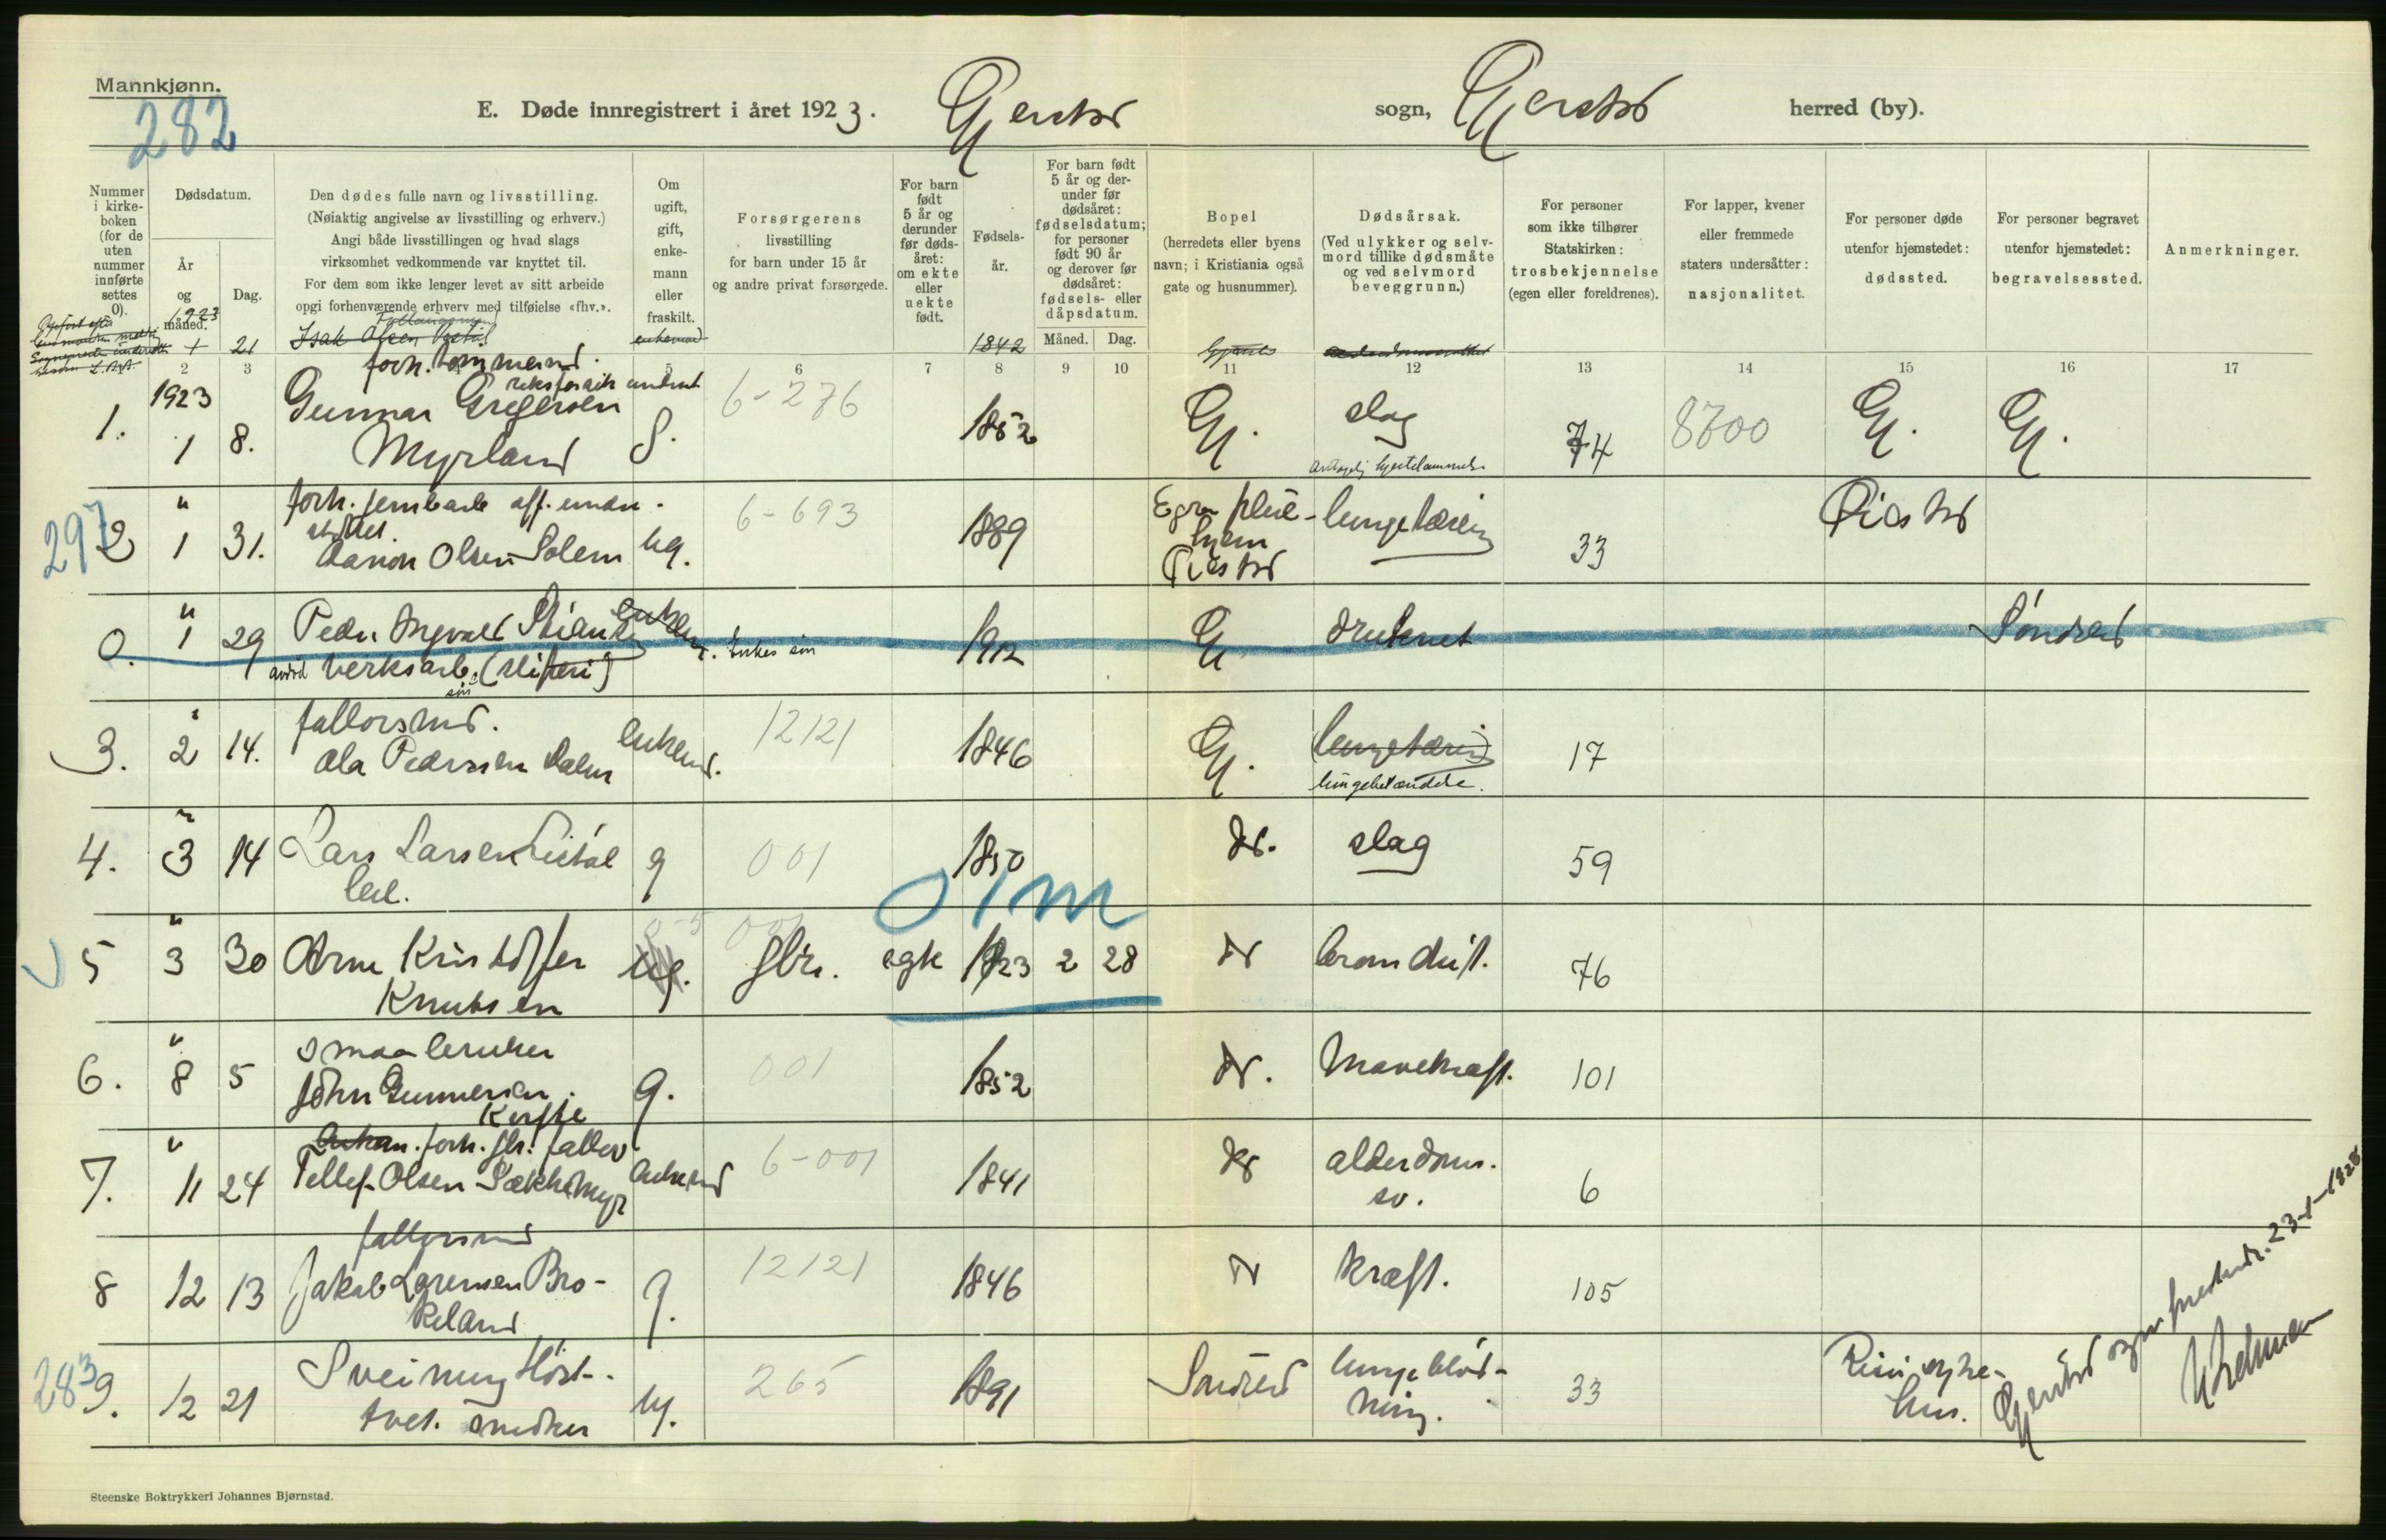 Mannkjønn.
282
E. Døde innregistrert i året 1923. Gjerstad sogn, Gjerstad herred (by).
Nummer i kirke-boken (for de uten nummer innførte settes 0).
Dødsdatum.
År og måned.
Dag.
Den dødes fulle navn og livsstilling.
(Nøiaktig angivelse av livsstilling og erhverv.)
Angi både livsstillingen og hvad slags
virksomhet vedkommende var knyttet til.
For dem som ikke lenger levet av sitt arbeide
opgi forhenværende erhverv med tilføielse «fhv.».
Om ugift, gift, enke-mann eller fraskilt.
Forsørgerens
livsstilling
for barn under 15 år
og andre privat forsørgede.
For barn født 5 år og derunder før døds-året: om ekte eller uekte født.
Fødsels-år.
For barn født 5 år og der-under før dødsåret: fødselsdatum; for personer født 90 år og derover før dødsåret: fødsels- eller dåpsdatum.
Måned. Dag.
Bopel
(herredets eller byens
navn; i Kristiania også
gate og husnummer).
Dødsårsak.
(Ved ulykker og selv-
mord tillike dødsmåte
og ved selvmord
beveggrunn.)
For personer
som ikke tilhører
Statskirken:
trosbekjennelse
(egen eller foreldrenes).
For lapper, kvener
eller fremmede
staters undersåtter:
nasjonalitet.
For personer døde
utenfor hjemstedet:
dødssted.
For personer begravet
utenfor hjemstedet:
begravelsessted.
Anmerkninger.
1923
1 21 Isak Olsen enkemand 1842
2 3 5 6 7 8 9 10 11 12 13 14 15 16 17
forh. tømmermand
1. 1923 1 8. Gunnar Gregersen Myrland 6-276 1852 Gj. slag 74 8700 Gj. Gj.
297
2 " 1 31. Aanon Olsen Solem ug. 6-693 1889 Egra pleie-hjem lungetæring 33
0. " 1 29 Peder Ingvald enkes søn 1912 G druknet Søndeled
3. " 2 14. Ola Pedersen Dalen enkem. 12121 1846 Gj. lungetæring
lungebetændelse. 17
4. " 3 14 Lars Larsen g 001 1850 do. slag 59
01m
5 " 3 30 Arne Kristoffer Knutsen ug. gbr. egte 1923 2 28 do 76
6. " 8 5 smaabruker
John Gunnersen g. 001 1852 do. Mavekræft. 101
7. " 11 24 forh. gbr.
Tellef Olsen 6-001 1841 do alderdoms.
sv. 6
8 12 13 Jakob Brokeland g. 12121 1846 do kræft. 105
283
9. 12 21 Sveinung snedker ug. 265 1891 Søndeled lungeblød-
ning. 33
Gjerstad 23-1-1928
Steenske Boktrykkeri Johannes Bjørnstad.